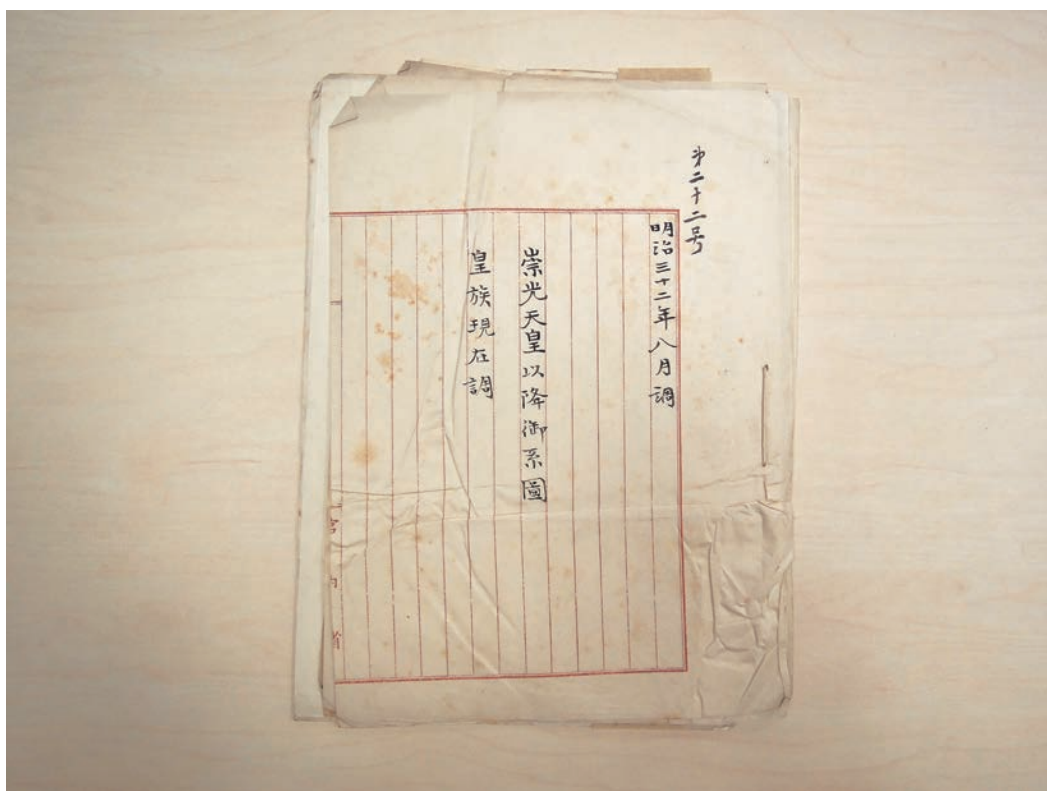 第二十二号
明治三十二年八月調
崇光天皇以降御系圖
皇族現在調
宮内省